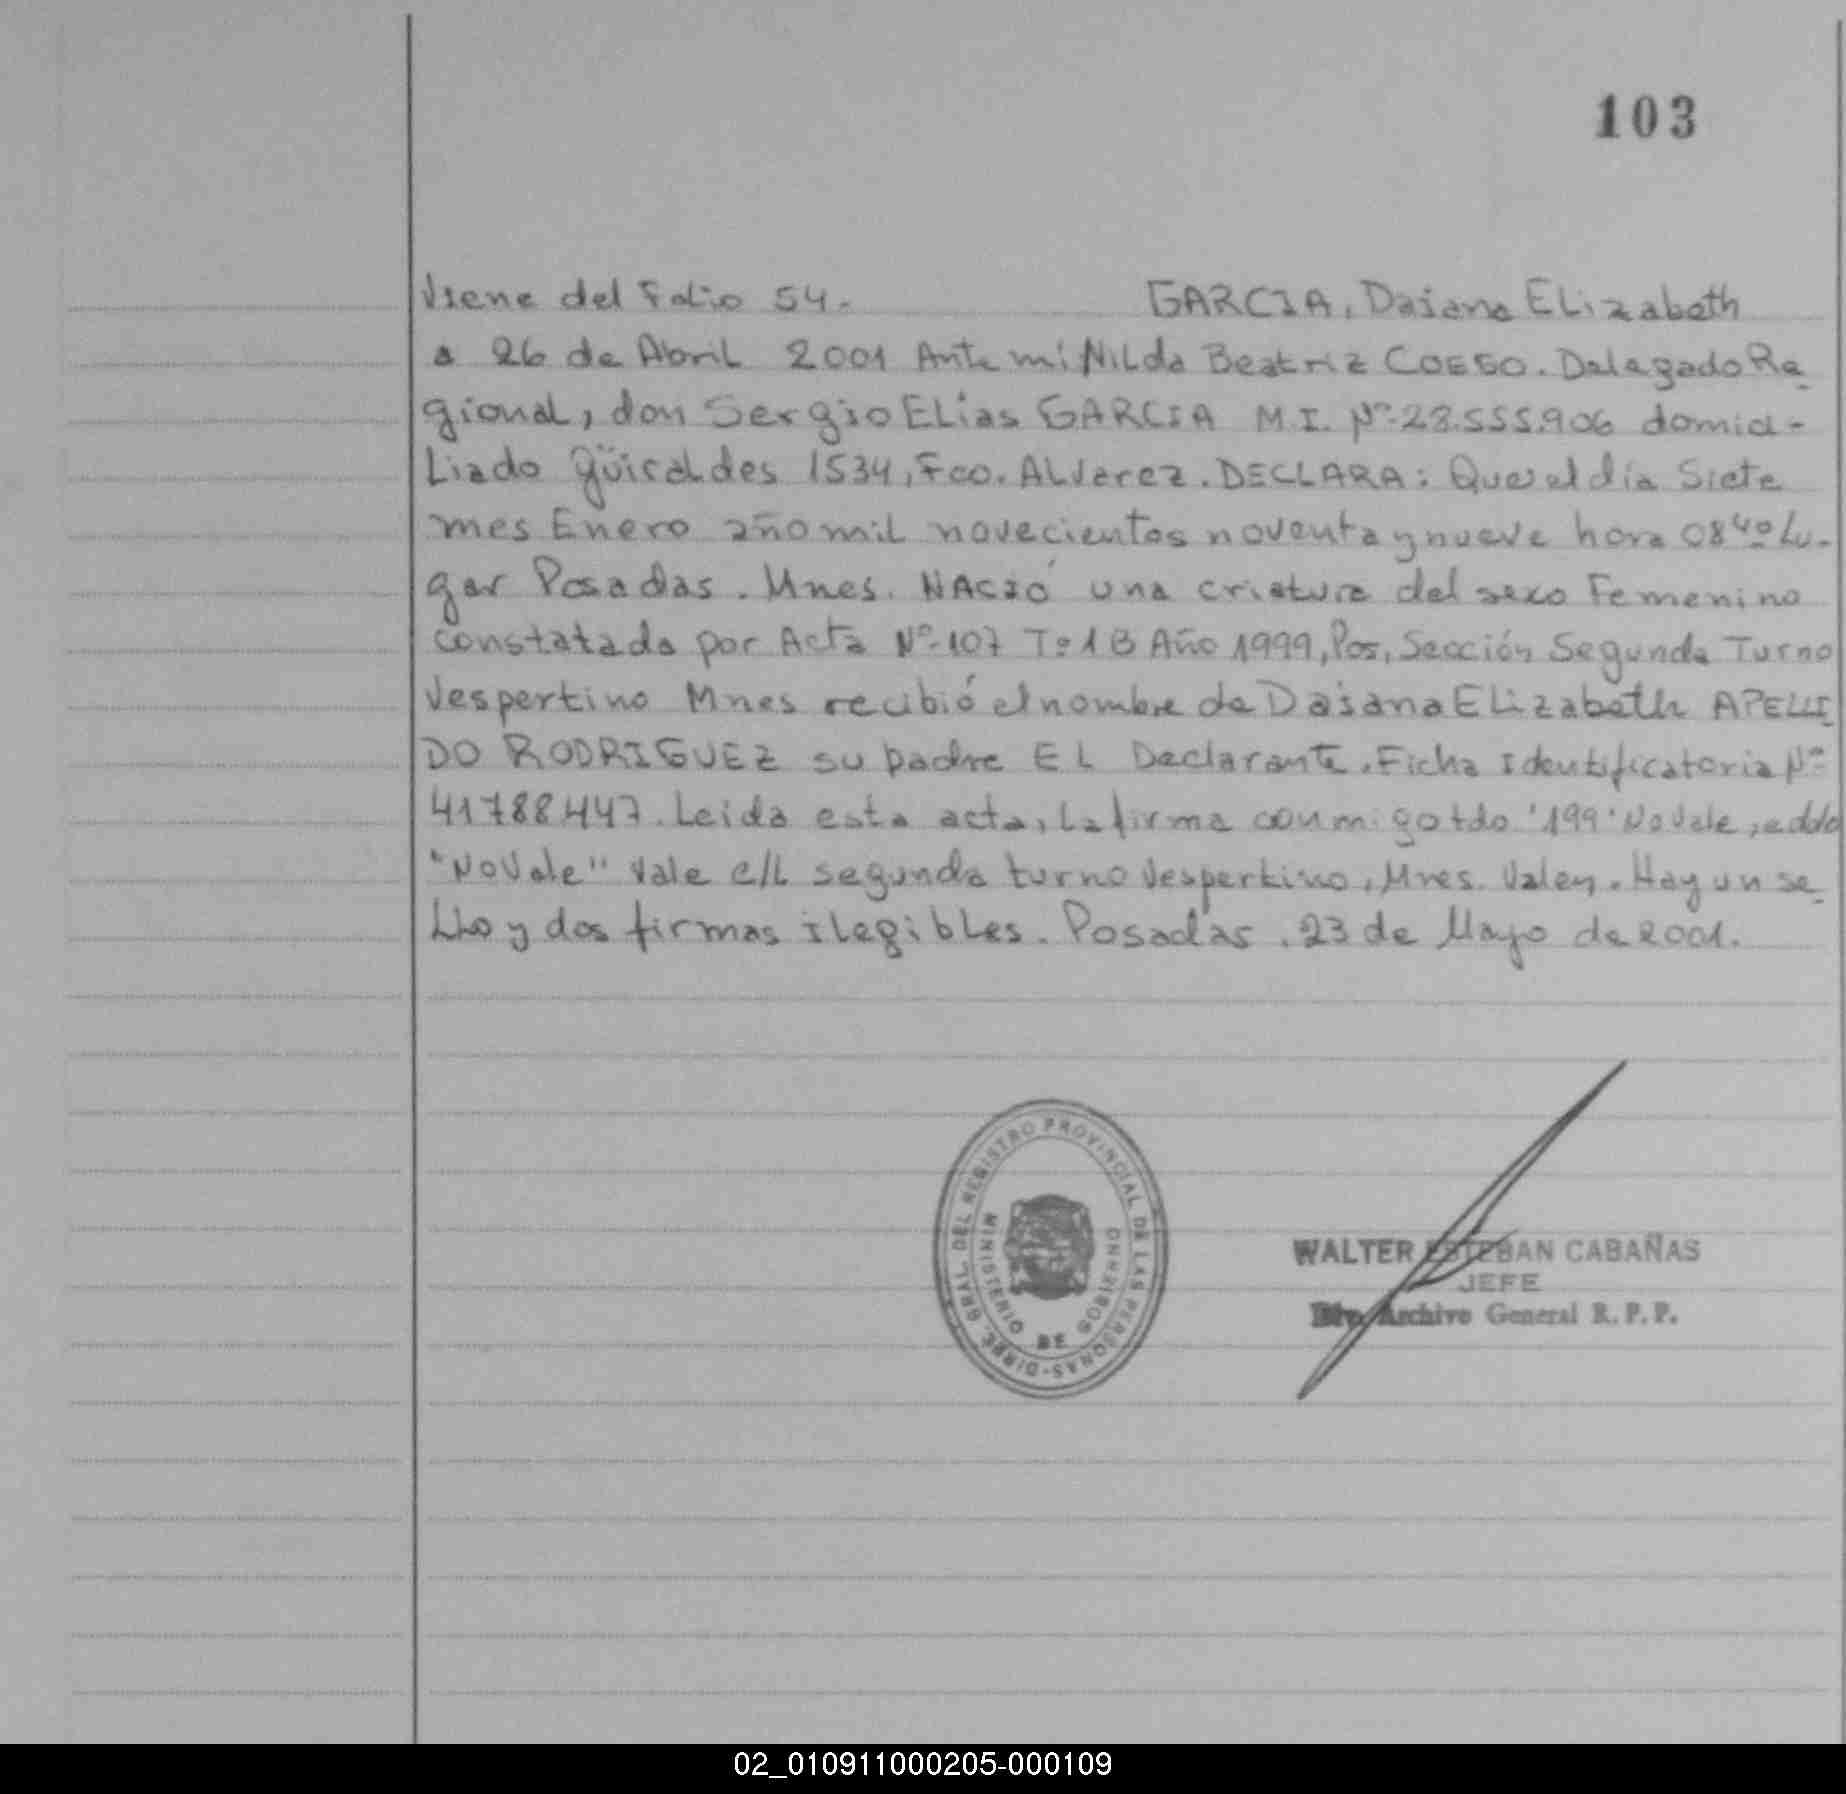 103
Viene del Folio 54.- GARCIA, Daiana Elizabeth
a 26 de Abril 2001 Ante mí Nilda Beatriz COESO. Delegado Re-
gional, don Sergio Elias GARCIA M.I. Nº 28.555.906 domici-
liado Güiraldes 1534, Fco. Alvarez. DECLARA: Que el día Siete
mes Enero año mil novecientos noventa y nueve hora 08 40 Lu-
gar Posadas. Mnes. NACIÓ una criatura del sexo Femenino
constatado por Acta Nº 107 Tº 1B Año 1999, Pos, Sección Segunda Turno
Vespertino Mnes recibió el nombre de Daiana Elizabeth APELLI-
DO RODRIGUEZ su padre EL Declarante. Ficha Identificatoria Nº
41788447. Leida esta acta, la firma conmigo tdo '199' No Vale, eddo
"No Vale" Vale e/l segunda turno Vespertino, Mnes. Valen. Hay un se-
llo y dos firmas ilegibles. Posadas. 23 de Mayo de 2001.
DIREC. GRAL. DEL REGISTRO PROVINCIAL DE LAS PERSONAS-
MINISTERIO DE GOBIERNO
WALTER ESTEBAN CABAÑAS
JEFE
Archivo General R.P.P.
02_010911000205-000109